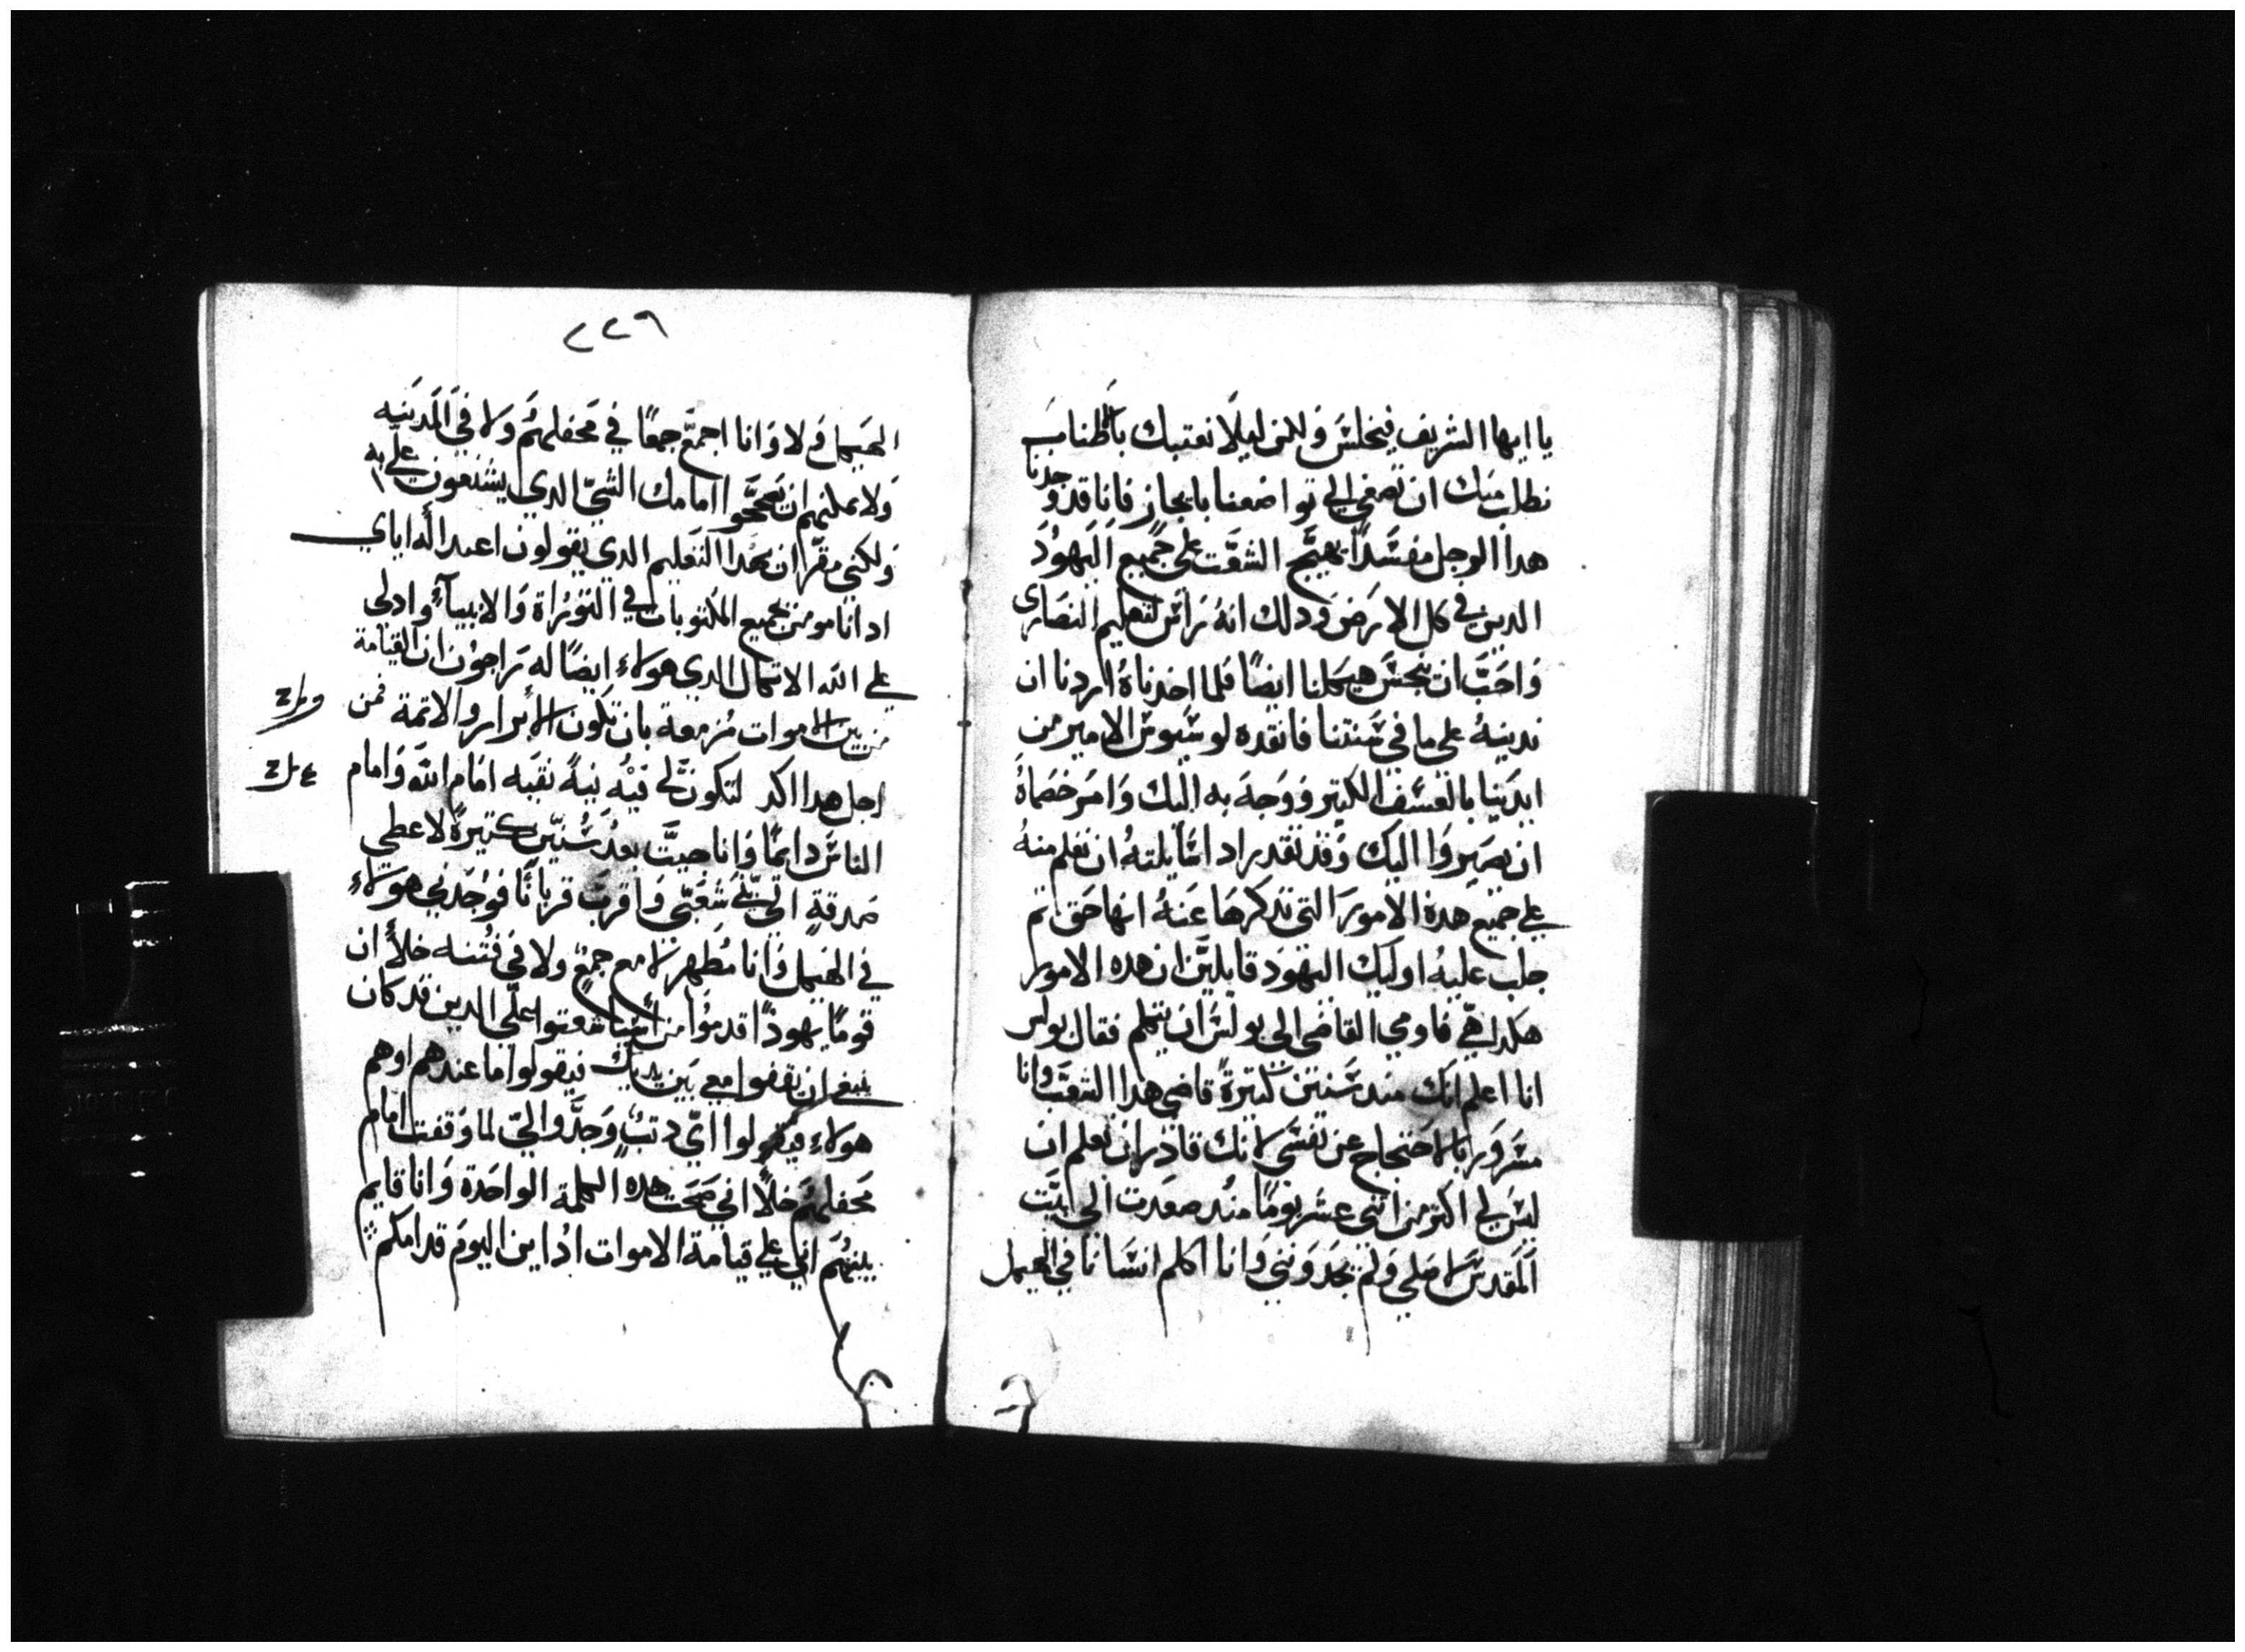 يا ايها الشريف فيخلس ولكن ليلا نعتبك باطناب
نطلب منك ان تصغي الي تواضعنا بايجاز فانا قد وجدنا
هدا الرجل مفسدا يهيج الشغت علي جميع اليهود
الدين في كل الارض ودلك انه يراس لتعليم النصارى
واحب ان ينجس هيكلنا ايضا فلما اخدناه اردنا ان
ندينه علي ما في سنتنا فانقده لوسيوس الامير من
ايدينا بالعسف الكتير ووجه به اليك وامر خصماه
ان يصيروا اليك وقد تقدر ادا سايلته ان تعلم منه
علي جميع هده الامور التي ندكرها عنه انها حق تم
جلب عليه اوليك اليهود قايلين ان هده الامور
هكدا هي فاومي القاضي الي بولس ان يتكلم فقال بولس
انا اعلم انك مند سنين كتيرة قاضي هدا الشعب وانا
مسرور بالاحتجاج عن نفسي لانك قادر ان تعلم ان
ليس لي اكتر من اتني عشر يوما مند صعدت الي بيت
المقدس لاصلي ولم يجدونني وانا اكلم انسانا في الهيكل
٢٢٩
الهيكل ولا وانا اجمع جمعا في محفلهم ولا في المدينه
ولا يمكنهم ان يصححوا امامك الشي الدي يشنعون علي به
ولكني مقر ان بهدا التعليم الدي يقولون اعبد اله اباي
اد انا مومن بجميع المكتوبات في التوراة والانبيآء وادلي
علي الله الاتكال الدي هولاء ايضا له يراجون ان القيامة
من بين الاموات مزمعة بان تكون للابرار والاتمة فمن
اجل هدا اكد لتكون لي فيه نية نقيه امام الله وامام
الناس دايما وانا جيت بعد سنين كتيرة لاعطي
صدقة الي بني شعبي واقرب قربانا فوجدني هولاء
في الهيكل وانا مطهر لا مع جمع ولا في فتنه خلا ان
قوما يهودا قدموا من اسيا شغتوا علي الدين قد كان
ينبغي ان يقفوا معي بين يديك فيقولوا ما عندهم او هم
هولاء فيقولوا اي دنب وجدوا لي لما وقفت امام
محفلهم خلا اني صحت هده الكلمة الواحدة وانا قايم
بينهم اني علي قيامة الاموات ادا اين اليوم قدامكم